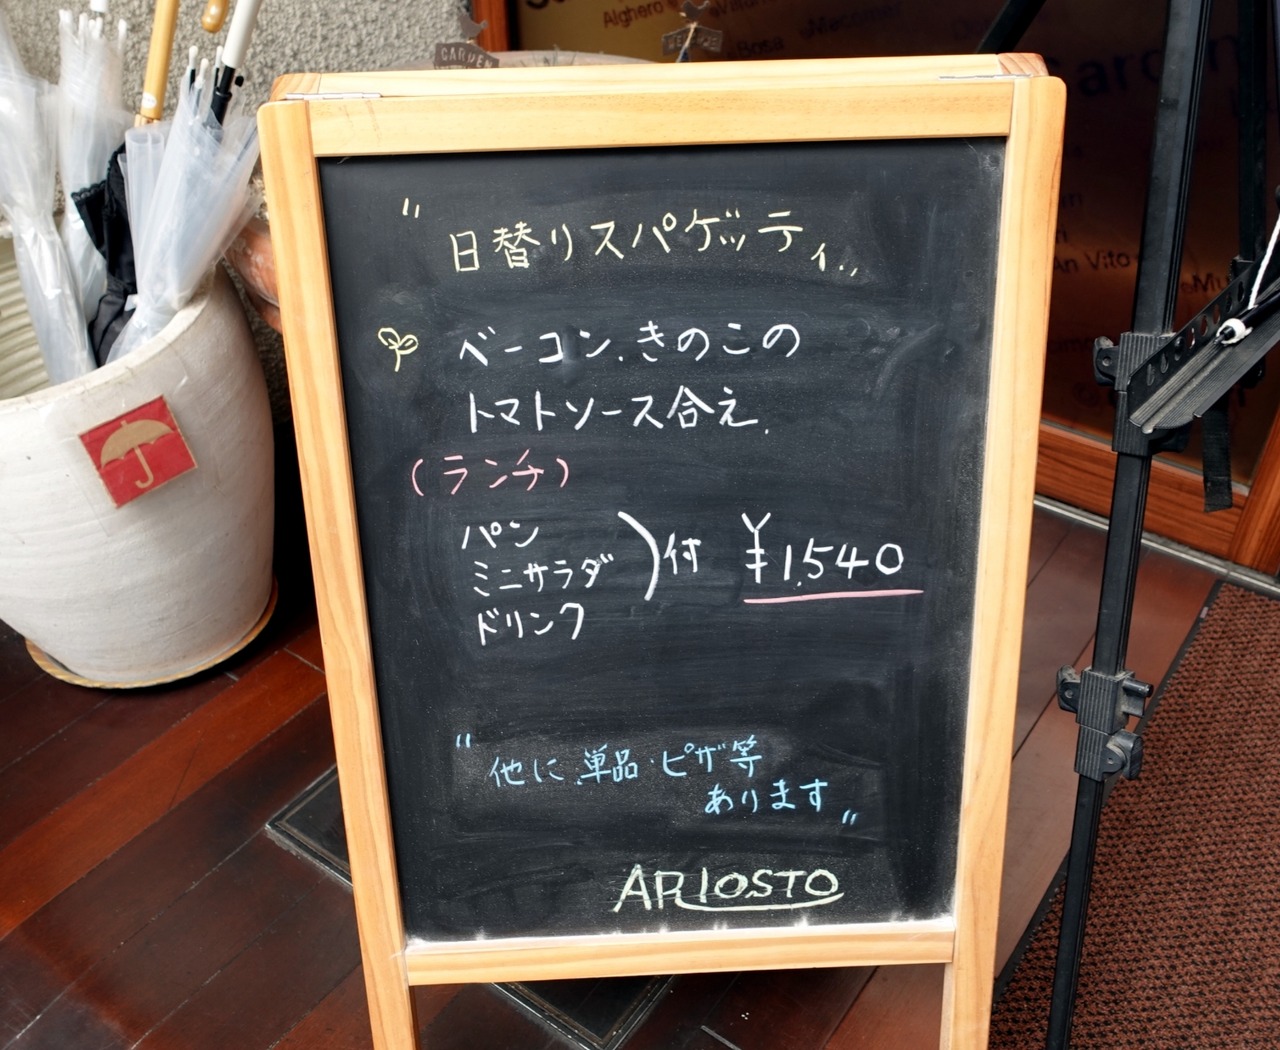 GARDEN
Alghero
Bosa
Macomer
An Vito
"日替りスパゲッティ"
ベーコン.きのこの
トマトソース合え.
(ランチ)
パン
ミニサラダ
ドリンク
)付 ¥1,540
"他に.単品・ピザ等
あります"
ARIOSTO